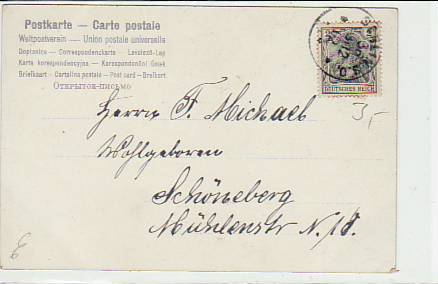 Postkarte — Carte postale
Weltpostverein — Union postale universelle
Dopisnice — Correspondenzkarte — Levelező-Lap
Karta korespondencyjna — Korespondenční lístek
Briefkaart — Cartolina postale — Post card — Brefkort
Открытое-письмо
DEUTSCHES REICH
3,-
Herrn F. Michael
Wohlgeboren
Schöneberg
Mühlenstr